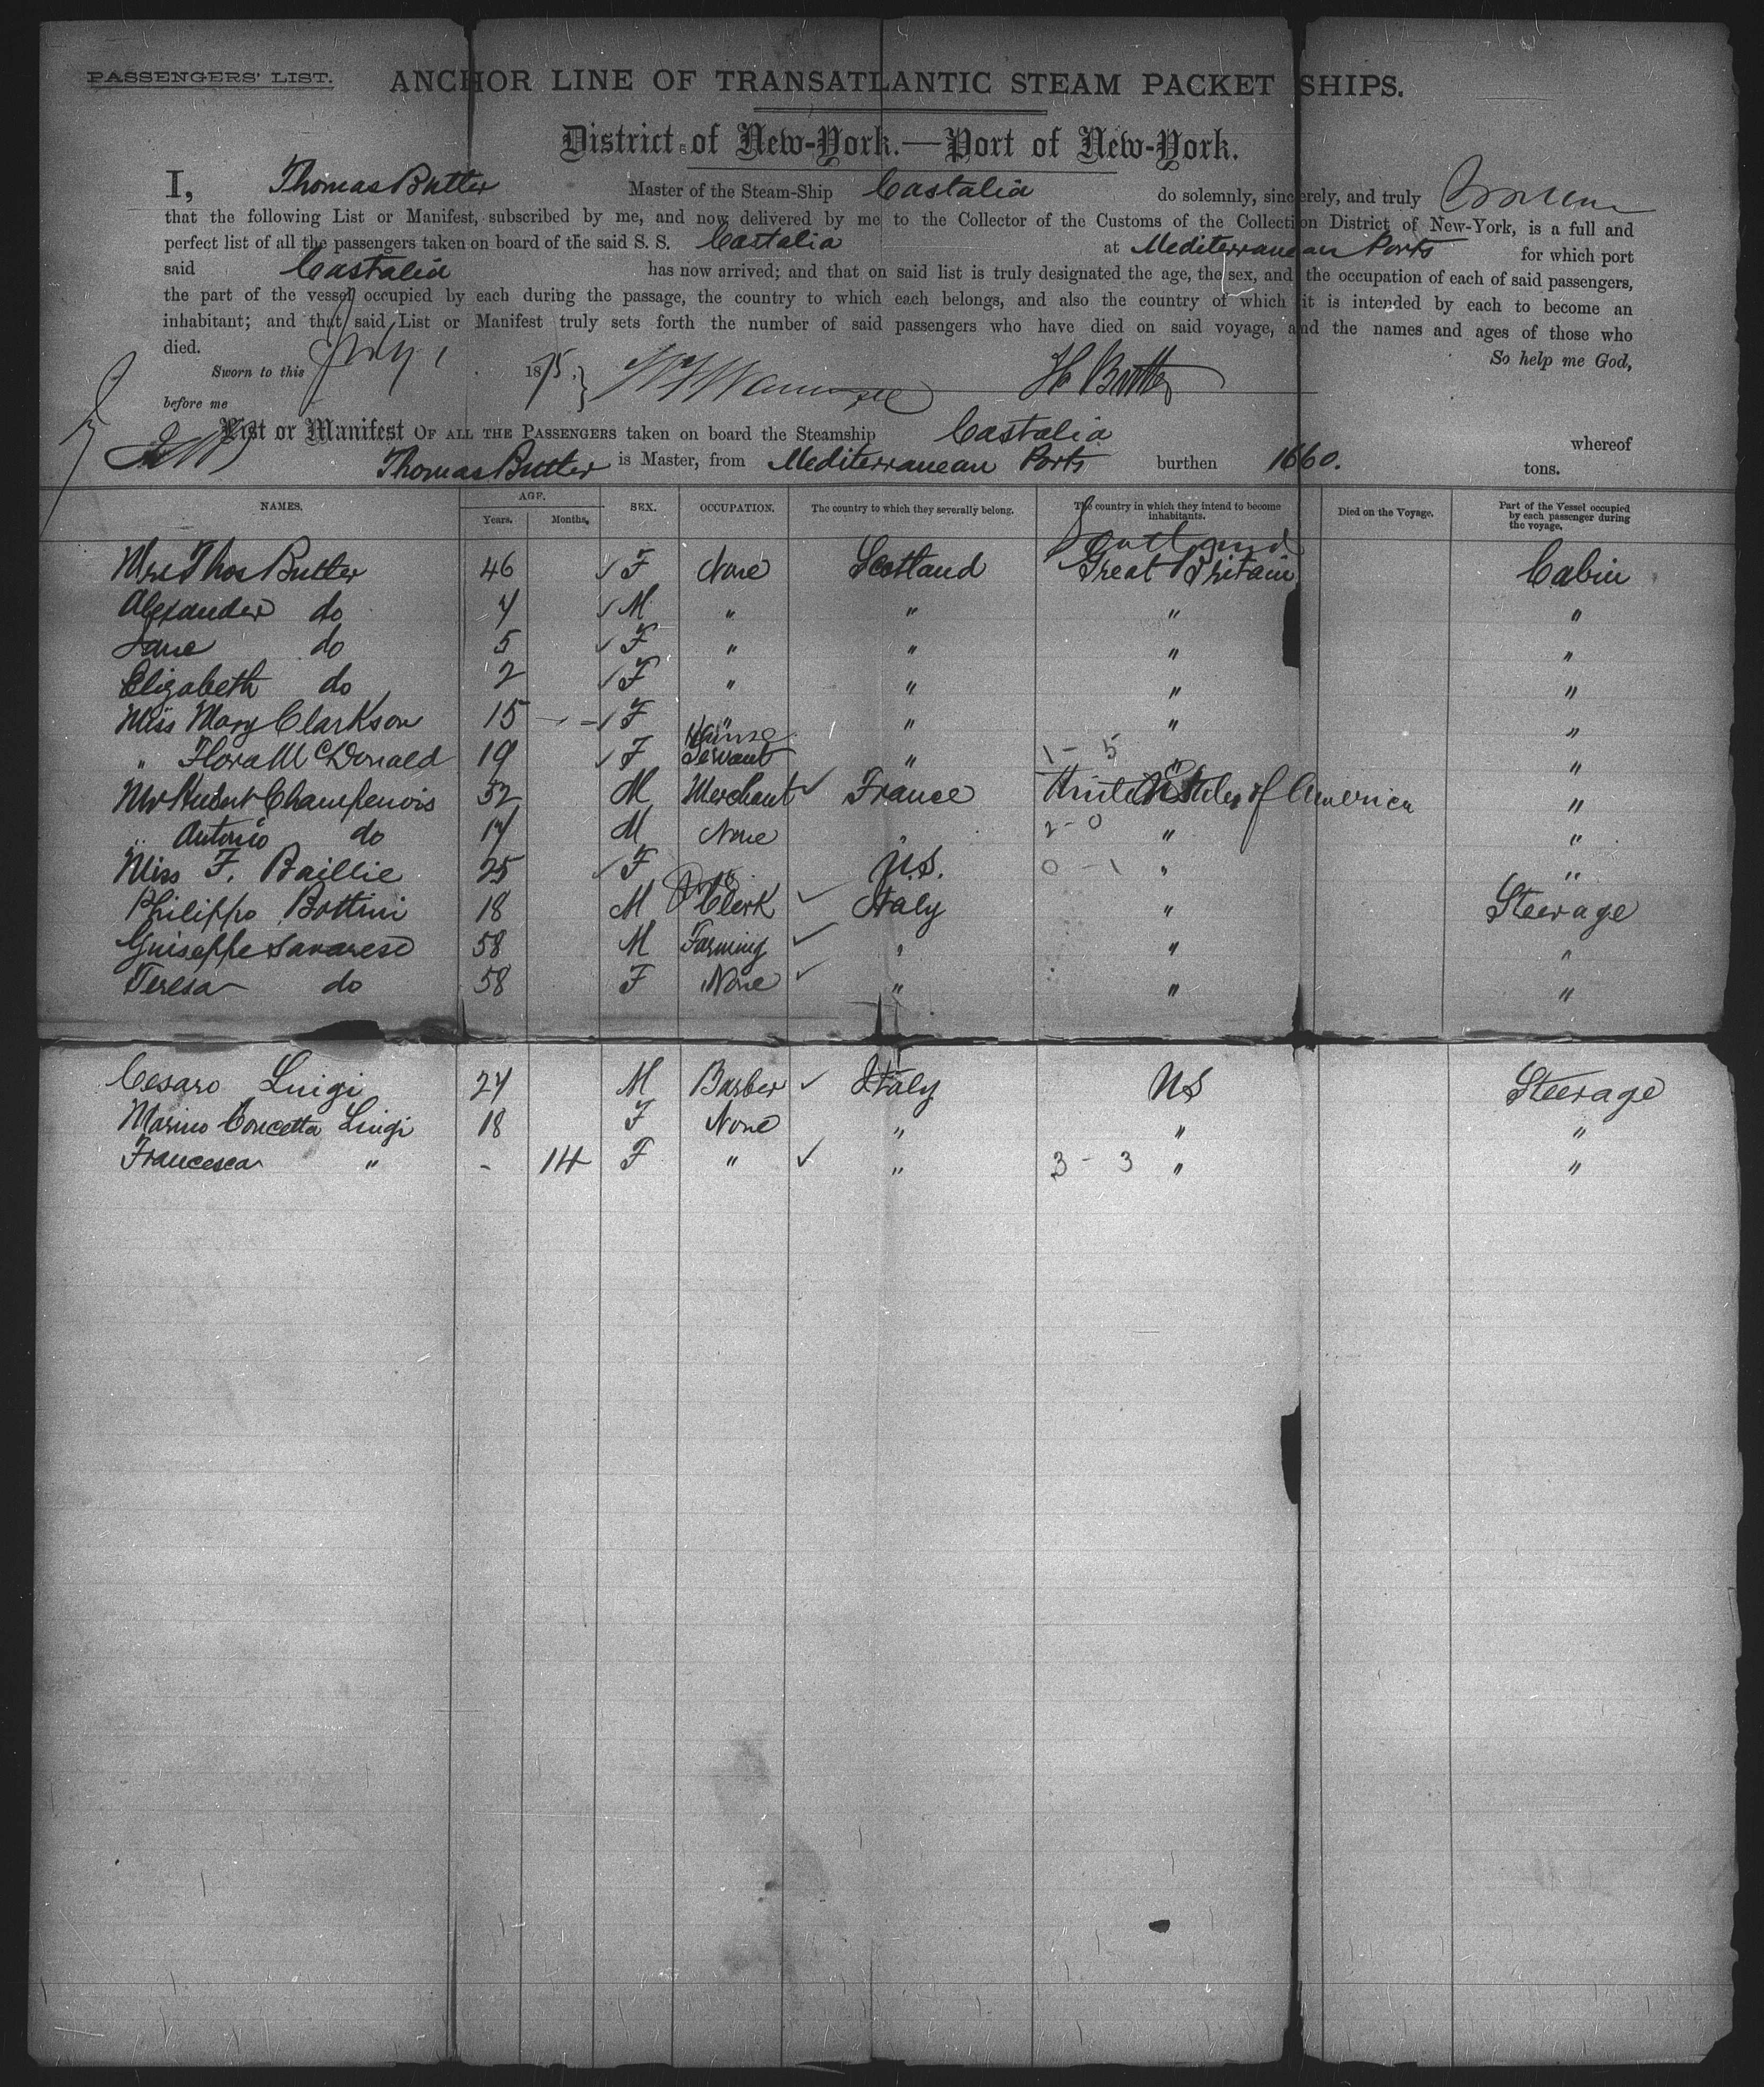 PASSENGERS' LIST. ANCHOR LINE OF TRANSATLANTIC STEAM PACKET SHIPS.
District of New-York.—Port of New-York.
I, Thomas Butler Master of the Steam-Ship Castalia do solemnly, sincerely, and truly
that the following List or Manifest, subscribed by me, and now delivered by me to the Collector of the Customs of the Collection District of New-York, is a full and
perfect list of all the passengers taken on board of the said S. S. Castalia at Mediterranean Ports for which port
said Castalia has now arrived; and that on said list is truly designated the age, the sex, and the occupation of each of said passengers,
the part of the vessel occupied by each during the passage, the country to which each belongs, and also the country of which it is intended by each to become an
inhabitant; and that said List or Manifest truly sets forth the number of said passengers who have died on said voyage, and the names and ages of those who
died. So help me God,
Sworn to this July 1 1875.
before me
List or Manifest OF ALL THE PASSENGERS taken on board the Steamship Castalia whereof
Thomas Butler is Master, from Mediterranean Ports burthen 1660. tons.
NAMES. AGE. Years. Months. SEX. OCCUPATION. The country to which they severally belong. The country in which they intend to become inhabitants. Died on the Voyage. Part of the Vessel occupied by each passenger during the voyage.
Scotland
Mrs Thos Butler 46 ✓ F None Scotland Great Britain Cabin
Alexander do 7 ✓ M " " " "
Jane do 5 ✓ F " " " "
Elizabeth do 2 ✓ F " " " "
Miss Mary Clarkson 15 ✓ F " " " "
" Flora McDonald 19 ✓ F Servant " 1 - 5 " "
Mr Champenois 52 M Merchant ✓ France United States of America "
" Antonio do 17 M None " 2 - 0 " "
Miss F. Baillie 25 ✓ F U.S. 0 - 1 " "
Philippo Bottini 18 M Clerk ✓ Italy " Steerage
Guiseppe Savarese 58 M Farming ✓ " " "
Teresa do 58 F None ✓ " " "
Cesaro Luigi 27 M Barber ✓ Italy US Steerage
Marino Concetta Luigi 18 F None " " "
Francesca " - 14 F " ✓ " 3 - 3 " "